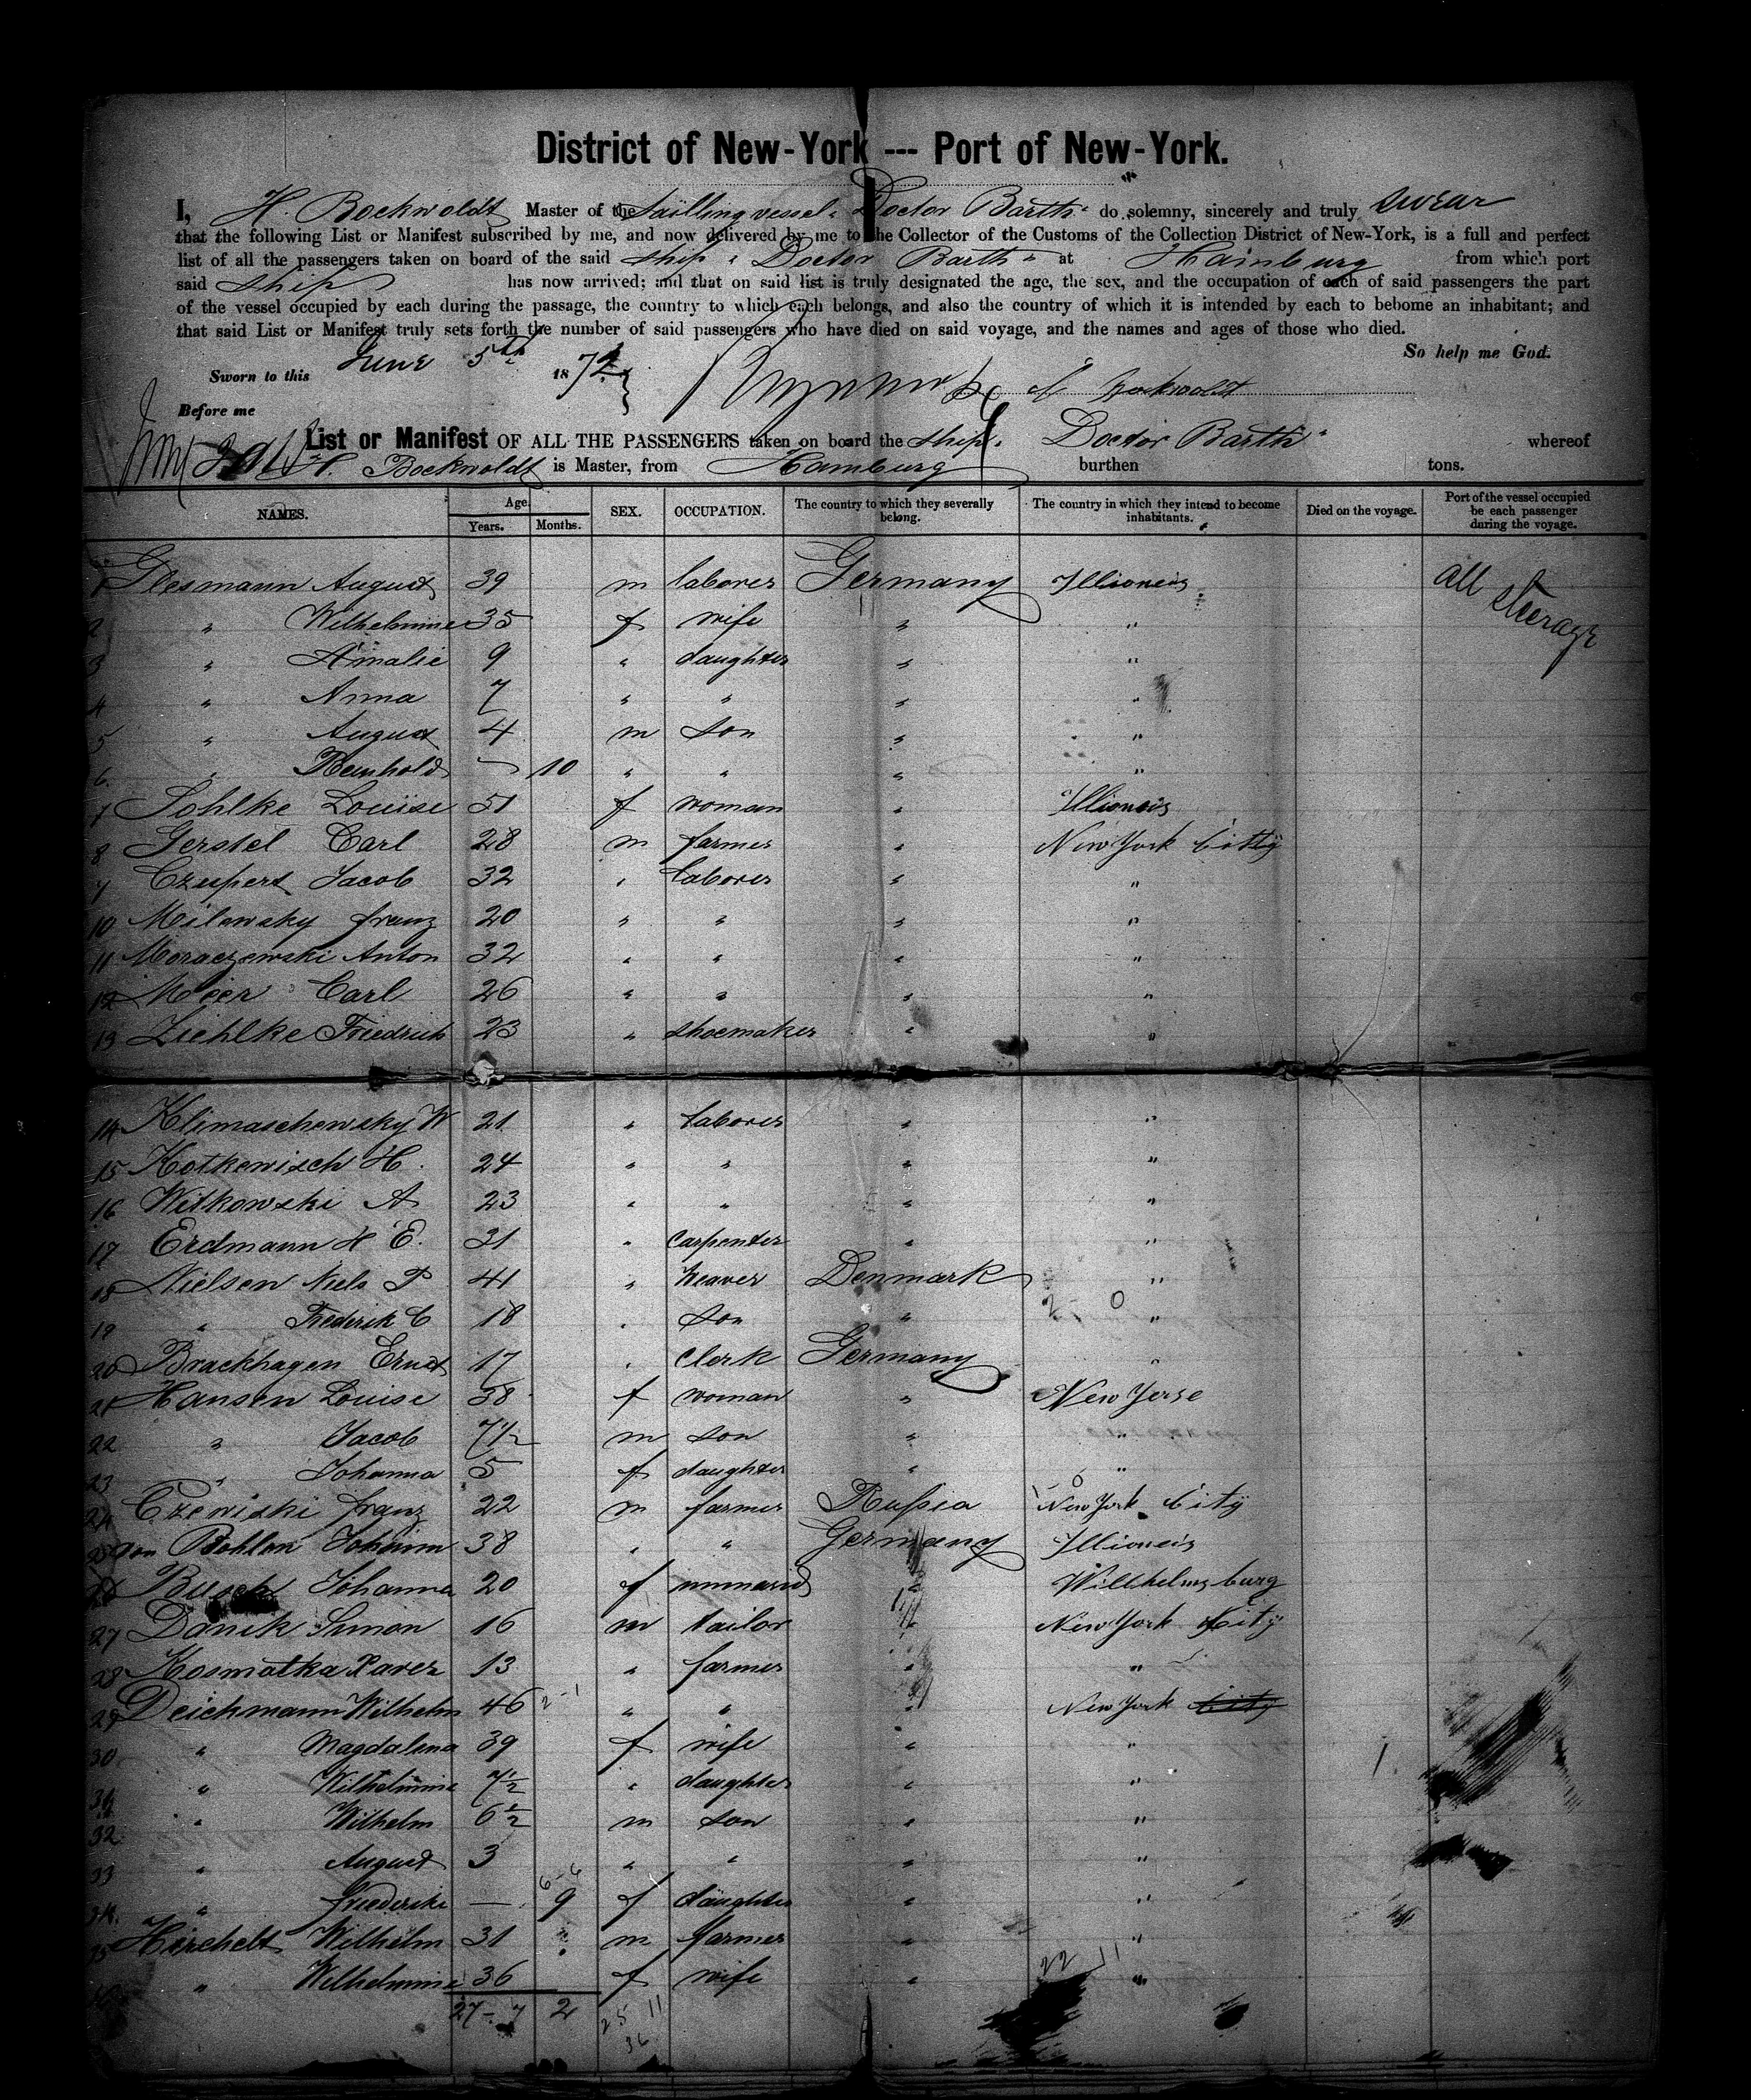 District of New-York --- Port of New-York.
I, H. Bockwoldt Master of the Sailling vessel „Doctor Barth“ do solemny, sincerely and truly swear
that the following List or Manifest subscribed by me, and now delivered by me to the Collector of the Customs of the Collection District of New-York, is a full and perfect
list of all the passengers taken on board of the said ship „Doctor Barth“ at Hamburg from which port
said ship has now arrived; and that on said list is truly designated the age, the sex, and the occupation of each of said passengers the part
of the vessel occupied by each during the passage, the country to which each belongs, and also the country of which it is intended by each to bebome an inhabitant; and
that said List or Manifest truly sets forth the number of said passengers who have died on said voyage, and the names and ages of those who died.
So help me God.
Sworn to this June 5th 1872
Bockwoldt
Before me
List or Manifest OF ALL THE PASSENGERS taken on board the ship „Doctor Barth“ whereof
H. Bockwoldt is Master, from Hamburg burthen tons.
NAMES. Age. Years. Months. SEX. OCCUPATION. The country to which they severally belong. The country in which they intend to become inhabitants. Died on the voyage. Port of the vessel occupied be each passenger during the voyage.
1 Glesmann August 39 m laborer Germany Illioneis all steerage
2 " Wilhelmine 35 f wife " "
3 " Amalie 9 " daughter " "
4 " Anna 7 " " " "
5 " August 4 m son " "
6 " Reinhold — 10 " " " "
7 Sohlke Louise 51 f woman " Illioneis
8 Gerstel Carl 28 m farmer " New York City
9 Czupert Jacob 32 " laborer " "
10 Milewsky franz 20 " " " "
11 Moraczewski Anton 32 " " " "
12 Meier Carl 26 " " " "
13 Ziehlke Friedrich 23 " shoemaker " "
14 Klimaschewsky W 21 " laborer " "
15 Kotkewisch H. 24 " " " "
16 Witkowski A 23 " " " "
17 Erdmann H E. 31 " carpenter " "
18 Nielsen Niels P 41 " Weaver Denmark "
19 " Frederik C 18 " son " "
20 Brackhagen Ernst 17 " Clerk Germany "
21 Hansen Louise 38 f woman " New Yerse
22 " Jacob 7½ m son " "
23 " Johanna 5 f daughter " "
24 Czewiski franz 22 m farmer Rußia New York City
25 von Bohlen Johann 38 " " Germany Illioneis
26 Busch Johanna 20 f unmaried " Willhelmsburg
27 Danik Simon 16 m tailor " New York City
28 Kosmatka Xaver 13 " farmer " "
29 Deichmann Wilhelm 46 2-1 " " " New York City
30 " Magdalena 39 f wife " "
31 " Wilhelmine 7½ " daughter " "
32 " Wilhelm 6½ m son " "
33 " August 3 " " " "
34 " friederike — 9 f daughter " "
35 Hirchelt Wilhelm 31 m farmer " "
36 " Wilhelmine 36 f wife " "
27 - 7 2 25 11
36
22 11